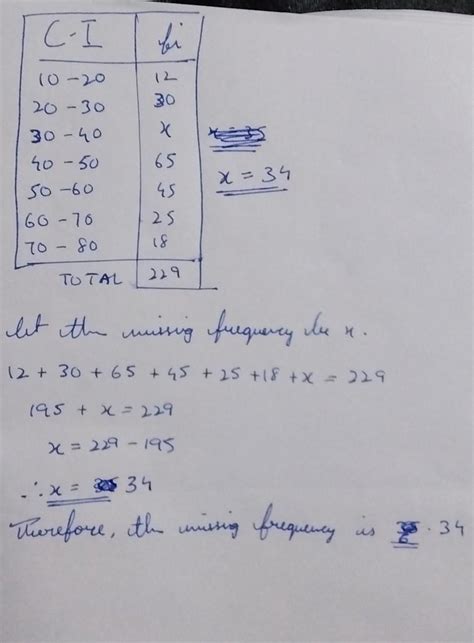 C-I fi
10-20 12
20-30 30
30-40 x
40-50 65
x = 34
50-60 45
60-70 25
70-80 18
TOTAL 229
let the missing frequency be x.
12 + 30 + 65 + 45 + 25 + 18 + x = 229
195 + x = 229
x = 229 - 195
∴ x = 34
Therefore, the missig frequency is 34